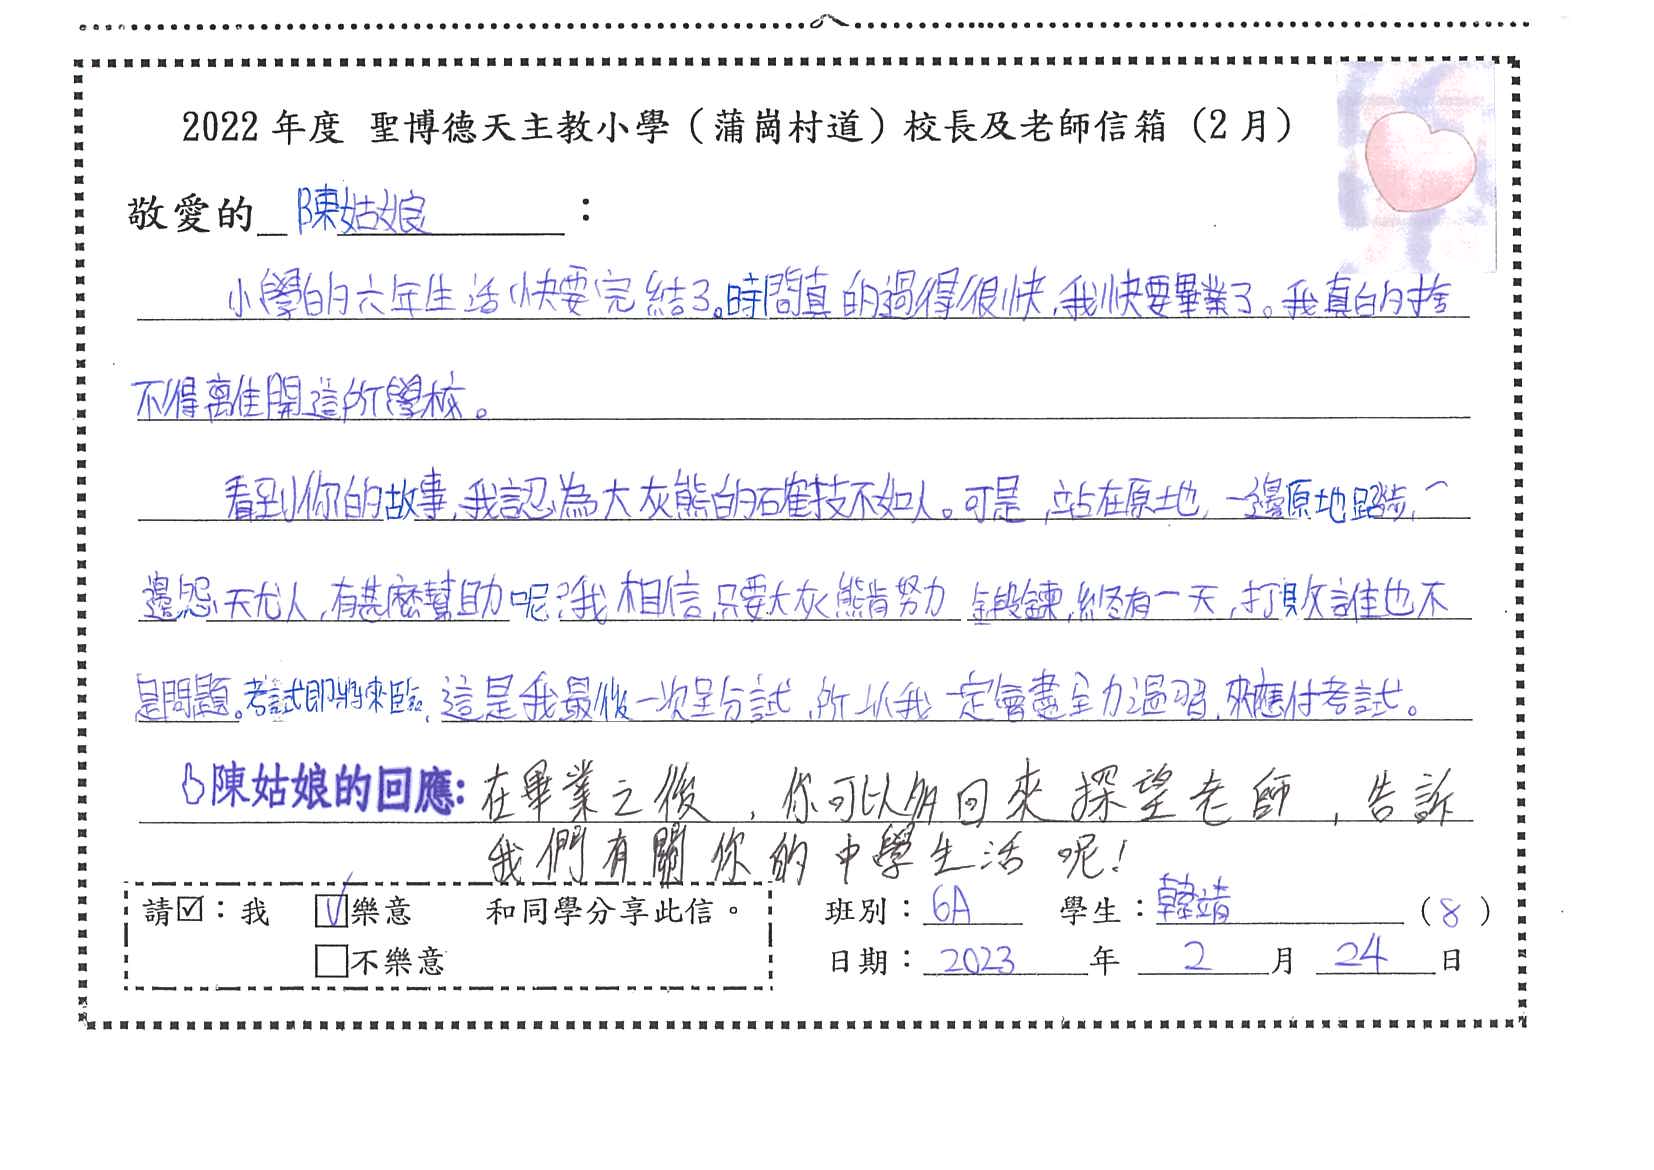 2022 年度 聖博德天主教小學（蒲崗村道）校長及老師信箱（2 月）
敬愛的 陳姑娘 ：
小學的六年生活快要完結了。時間真的過得很快，我快要畢業了。我真的捨
不得離開這所學校。
看到你的故事，我認為大灰熊的確技不如人。可是，站在原地，一邊原地踏步，一
邊怨天尤人，有甚麼幫助呢？我相信，只要大灰熊肯努力鍛鍊，終有一天，打敗誰也不
是問題。考試即將來臨，這是我最後一次呈分試，所以我一定會盡全力溫習，來應付考試。
陳姑娘的回應：在畢業之後，你可以多回來探望老師，告訴
我們有關你的中學生活呢！
請☑：我 ☑樂意 和同學分享此信。 班別：6A 學生：韓靖（8）
□不樂意 日期：2023 年 2 月 24 日